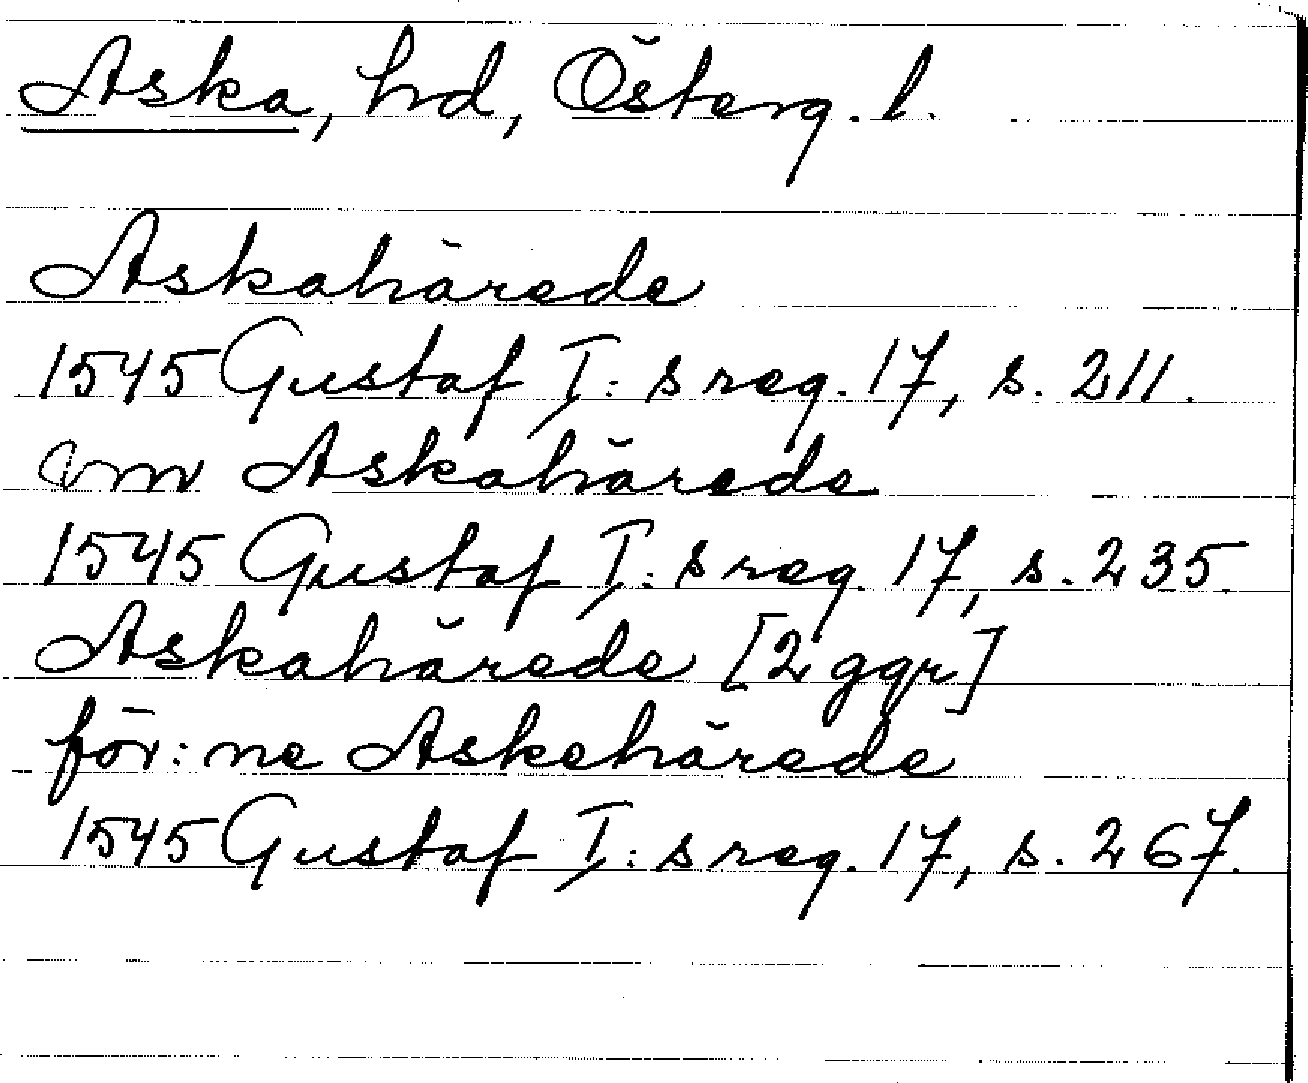 Aska, hd, Österg. l.
Askahärede
1545 Gustaf I: s reg. 17, s. 211.
om Askahärede
1545 Gustaf I: s reg. 17, s. 235.
Askahärede [2 ggr]
för: ne Askehärede
1545 Gustaf I: s reg. 17, s. 267.